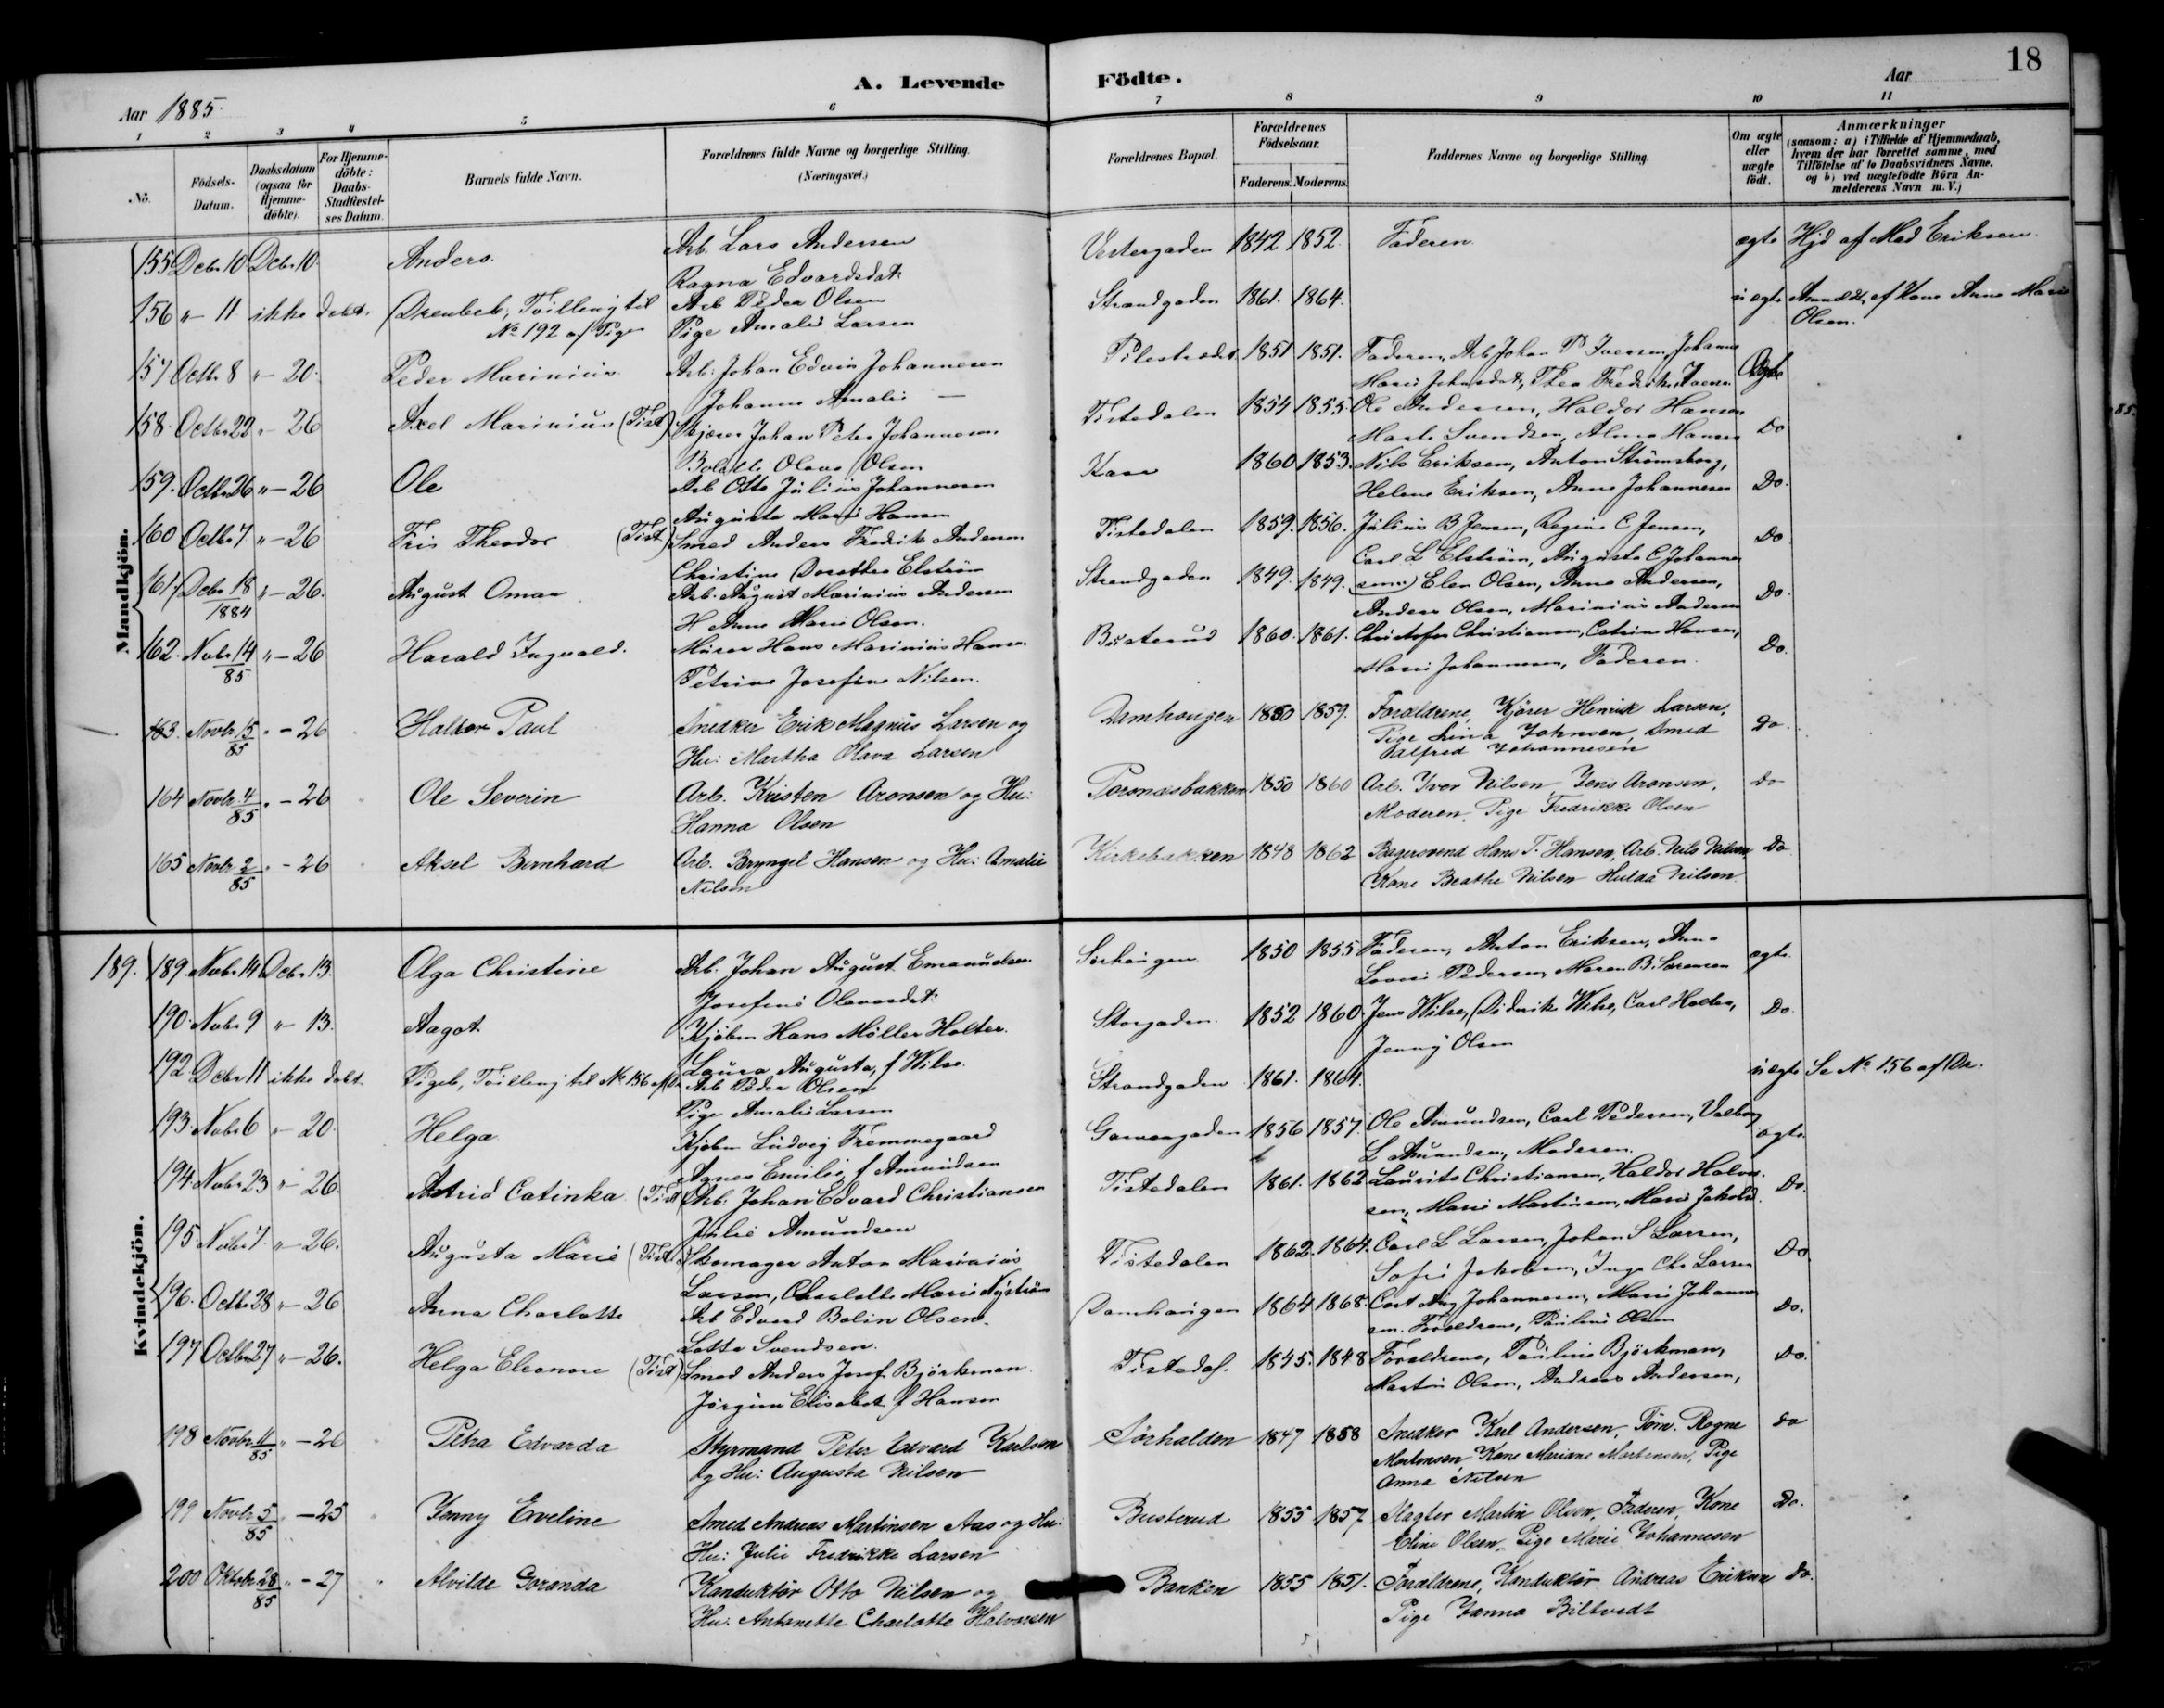 18
A. Levende Födte.
Aar 1885.
Aar
1 2 3 4 5 6 7 8 9 10 11
No.
Födsels-Datum.
Daabsdatum (ogsaa for Hjemme-döbte).
For Hjemme-döbte: Daabs-Stadfæstel-ses Datum.
Barnets fulde Navn.
Forældrenes fulde Navne og borgerlige Stilling. (Næringsvei.)
Forældrenes Bopæl.
Forældrenes Födselsaar.
Faderens. Moderens.
Faddernes Navne og borgerlige Stilling.
Om ægte eller uægte födt.
Anmærkninger (saasom: a) i Tilfælde af Hjemmedaab, hvem der har forrettet samme, med Tilföielse af to Daabsvidners Navne, og b) ved uægtefödte Börn An-melderens Navn m. V.)
Mandkjön.
155 Dcbr 10 Dcbr 10. Anders. Arb. Lars Andersen Vestergaden 1842 1852. Faderen. ægte Hjd af Mad Eriksen.
Ragna Edvardsdat:
156 " - 11 ikke döbt. Drenbeb, Tvilling til Arb Peder Olsen Strandgaden 1861. 1864. uægte Anmeldt af Kone Anne Marie
No 192 af Piger Pige Amalie Larsen Olsen.
157 Octbr 8 " - 20. Peder Marinius. Arb: Johan Edvin Johannesen Pilestrædet 1851 1851. Faderen, Arb Johan P Iversen, Johanne
Johanne Amalie — Marie Johnsdat, Thea Fredrikke Iversen Ægte
158. Octbr 22 " - 26 Axel Marinius (Tist) Skjærer Johan Peter Johannesen Tistedalen 1854 1855. Ole Andersen, Haldor Hansen
Bolette Olava Olsen Marte Svendsen, Alma Hansen Do
159. Octbr 26 " - 26 Ole Arb Otto Julius Johannesen 1860 1853. Nils Eriksen, Anton Strömsborg,
Augusta Marie Hansen Helene Eriksen, Anne Johannesen Do.
160 Octbr 7 " - 26 Fris Theodor (Tist) Smed Anders Fredrik Andersen Tistedalen 1859. 1856. Julius B Jensen, Regine C Jensen,
Christine Dorothea Elström Carl L Elström, Augusta C Johanne Do
161 Dcbr 18/1884 " - 26. August Omar Arb. August Marinius Andersen Strandgaden 1849. 1849. sen.) Elen Olsen, Anne Andersen,
H Anne Marie Olsen. Anders Olsen, Marinius Andersen Do.
162. Nvbr 14/85 " - 26 Harald Ingvald. Murer Hans Marinius Hansen Busterud 1860. 1861. Christofer Christiansen, Catrine Hansen,
Petrine Josefine Nilsen. Marie Johannesen, Faderen. Do.
163. Novbr 15/85 " - 26 Haldor Paul Snedker Erik Magnus Larsen og Damhougen 1850 1859. Forældrene, Kjörer Henrik Larsen,
Hu: Martha Olava Larsen Pige Lina Johnsen, Smed
Valfred Johannesen Do.
164 Novbr 4/85 " - 26 Ole Severin Arb. Kristen Aronsen og Hu: 1850 1860 Arb. Iver Nilsen, Jens Aronsen, Do
Hanna Olsen Moderen, Pige Fredrikke Olsen
165 Novbr 2/85 " - 26 Aksel Bernhard Arb. Bryngel Hansen og Hu: Amalie Kirkebakken 1848 1862 Bagersvend Hans T. Hansen, Arb. Nils Nilsen Do
Nilsen Kone Beathe Nilsen Hulda Nilsen.
Kvindekjön.
189. 189. Nvbr 14 Dcbr 13. Olga Christine Arb. Johan August Emanuelsen Sörhaugen 1850 1855 Faderen, Anton Eriksen, Anne
Josefine Olavesdat: Lovise Pedersen, Maren B. Sörensen ægte.
190. Nvbr 9 " - 13. Aagot. Kjöbm Hans Möller Holter. Storgaden 1852 1860. Jens Wilse, Didrik Wilse, Carl Holter, Do.
Laura Augusta, f Wilse. Jenny Olsen
192. Dcbr 11 ikke döbt. Pigeb, Tvilling til No 156 af Dr. Arb Peder Olsen Strandgaden 1861. 1864. uægte Se No 156 af Dr.
Pige Amalie Larsen
193. Nvbr 6 " - 20. Helga. Kjöbm Ludvig Fremmegaard Garvergaden 1856 1857. Ole Amundsen, Carl Pedersen, Valborg
Agnes Emilie, f Amundsen L Amundsen, Moderen. ægte.
194. Nvbr 23 " - 26. Astrid Catinka (Tist) Arb. Johan Edvard Christiansen Tistedalen 1861. 1862 Laurits Christiansen, Haldor Halvor-
Julie Amundsen sen, Marie Martinsen, Marie Jakobs. Do.
195. Nvbr 7. " - 26. Augusta Marie (Tist) Skomager Anton Marinius Tistedalen 1862. 1864. Carl L Larsen, Johan S Larsen,
Larsen, Charlotte Marie Nyström Sofie Jakobsen, Inga Chr Larsen Do
196. Octbr 28 " - 26 Anna Charlotte Arb Edvard Bolin Olsen. Damhaugen 1864 1868. Carl Aug Johannesen, Marie Johanne
Lotta Svendsen. sen. Forældrene, Pauline Olsen Do.
197 Octbr 27 " - 26. Helga Eleonore (Tist) Smed Anders Josef Björkman. Tistedal. 1845. 1848 Forældrene, Pauline Björkman,
Jörgine Elisabet f Hansen Martin Olsen, Andreas Andersen, Do.
198 Novbr 11/85 " - 26 Petra Edvarda Styrmand Peter Edvard Karlsen Sörhalden 1847 1858 Snedker Karl Andersen, Töm. Rogne Do
og Hu: Augusta Nilsen Mortensen Kone Mariane Mortensen, Pige
Anna Nilsen
199 Novbr 5/85 " - 25 Jenny Eveline Smed Andreas Martinsen Aas og Hu: Busterud 1855 1857 Slagter Martin Olsen, Faderen, Kone Do.
Hu: Julie Fredrikke Larsen Eline Olsen, Pige Marie Johannesen
200 Oktobr 28/85 " - 27 Alvilde Goranda Konduktör Otto Nilsen og Banken 1855 1851. Forældrene, Konduktör Andreas Eriksen Do.
Hu: Antonette Charlotte Halvorsen Pige Janna Biltvedt